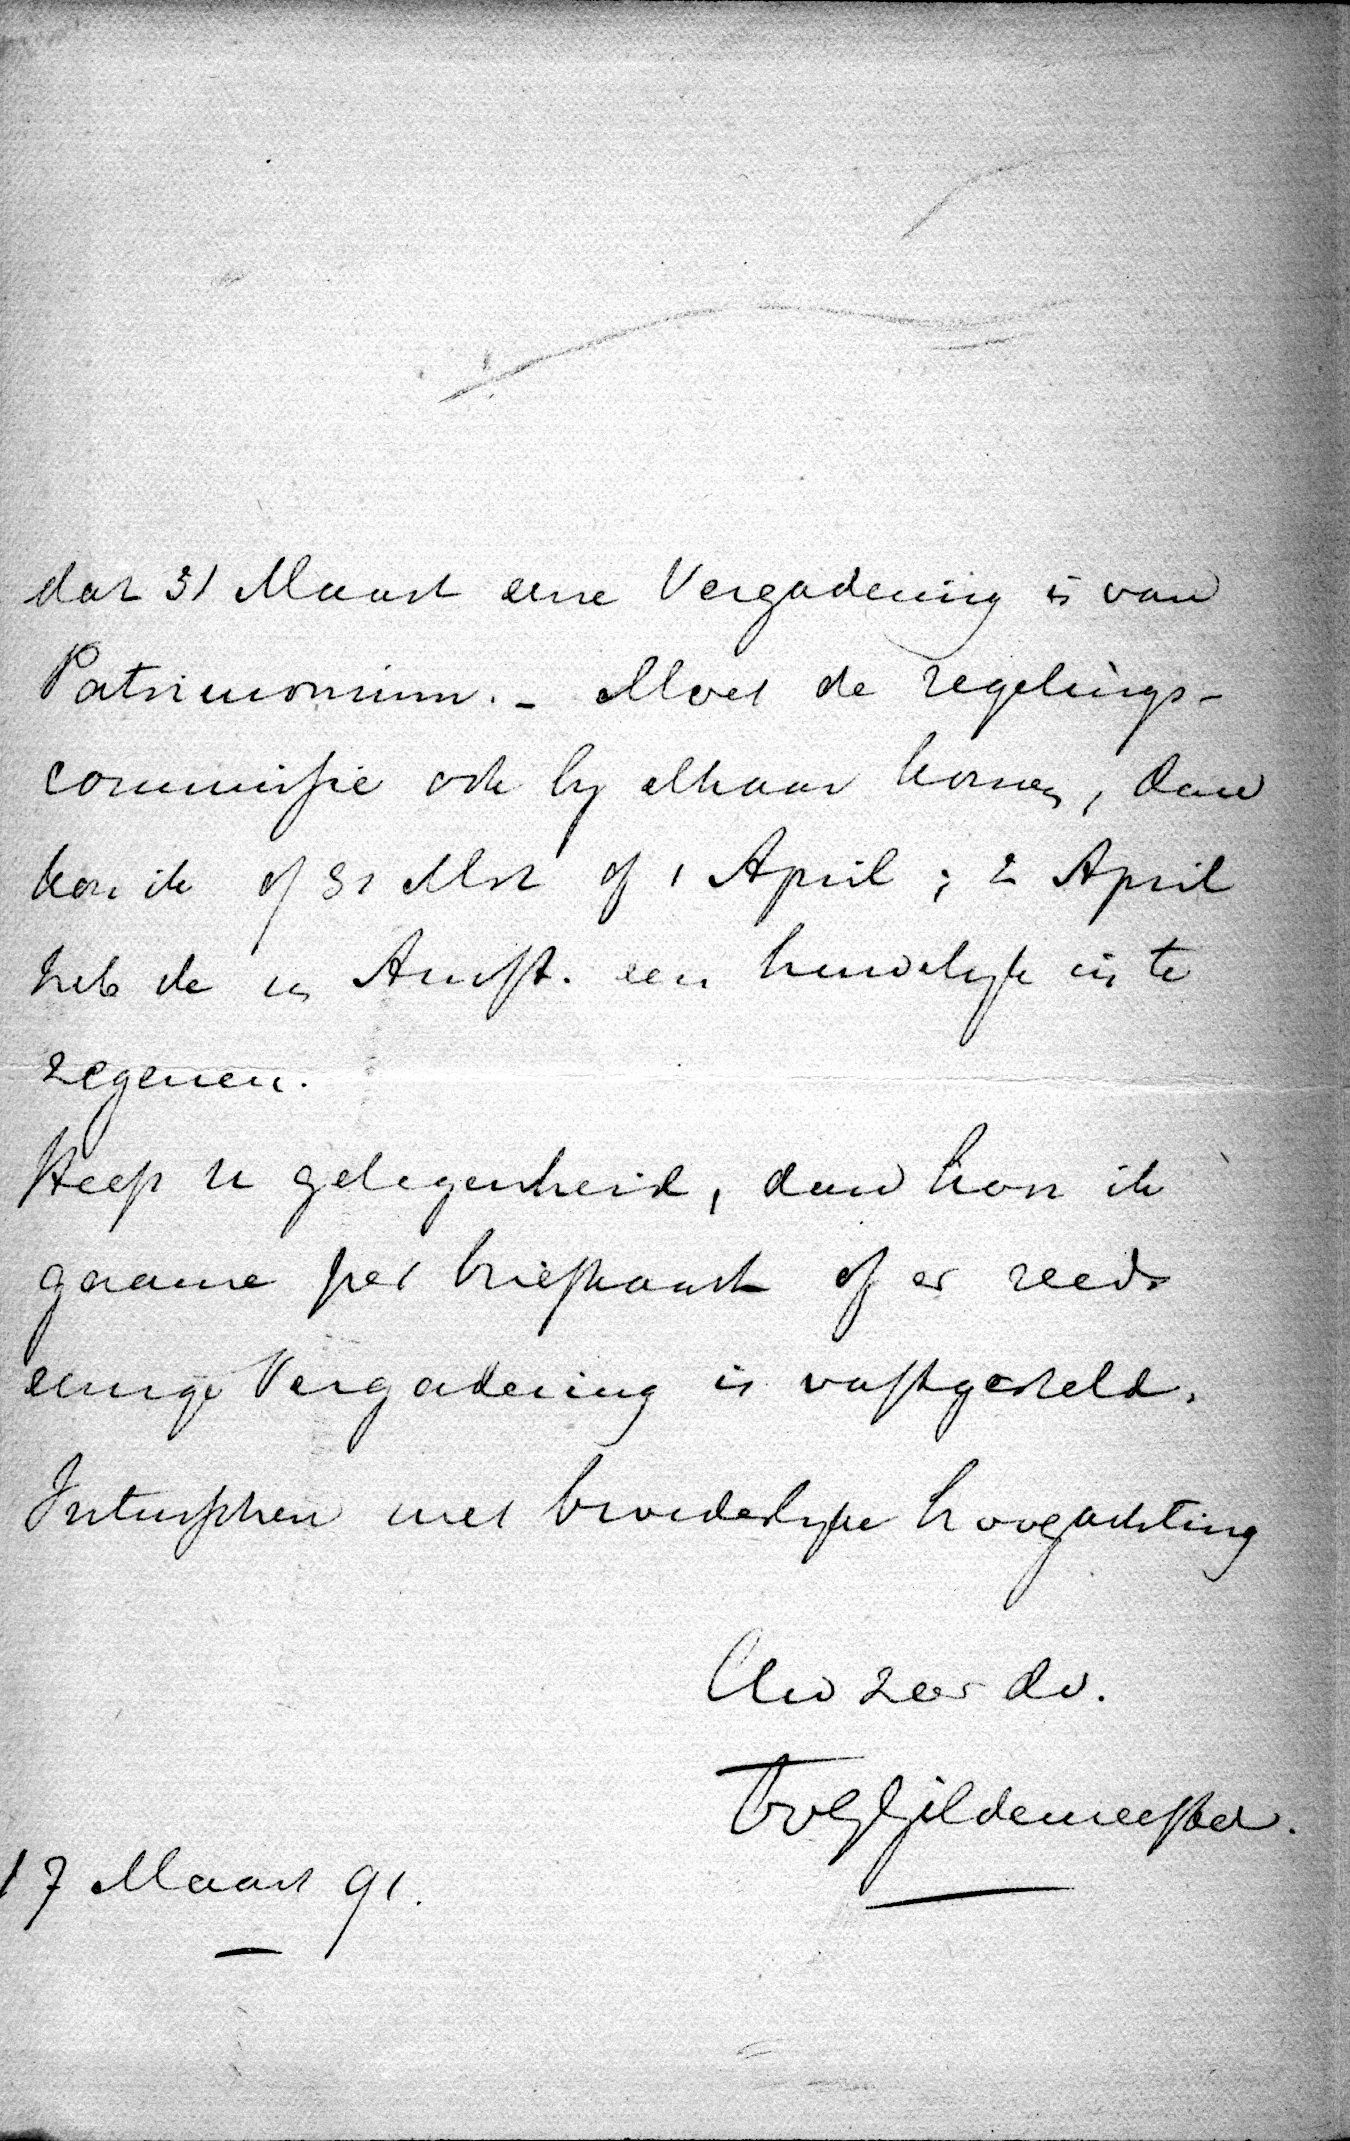 dat 31 Maart eene Vergadering is van
Patrimonium. - Moet de regelings-
commissie ook by elkaar komen, dan
kon ik of 31 Mrt of 1 April; 2 April
heb ik in Amst. een huwelyk in te
zegenen.
Heeft U gelegenheid, dan hoor ik
gaarne per briefkaart of er reeds
eenige Vergadering is vastgesteld.
Intusschen met broederlyke hoogachting
Uw zeer dv.
Gildemeester.
17 Maart 91.